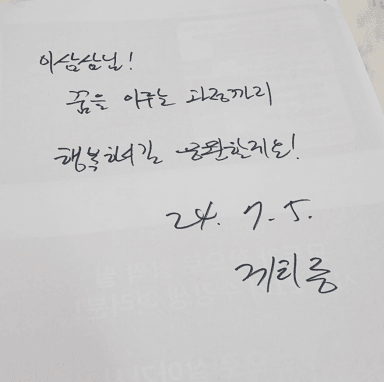 이삼삼님!
꿈을 이루는 과정까지
행복하시길 응원할게요!
24. 7. 5.